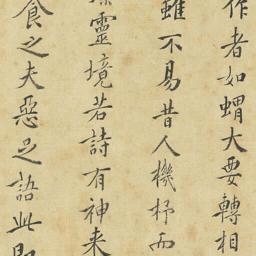 作者如蝟大要轉相
雖不易昔人機杼而
靈境若詩有神来
食之夫惡足語此即